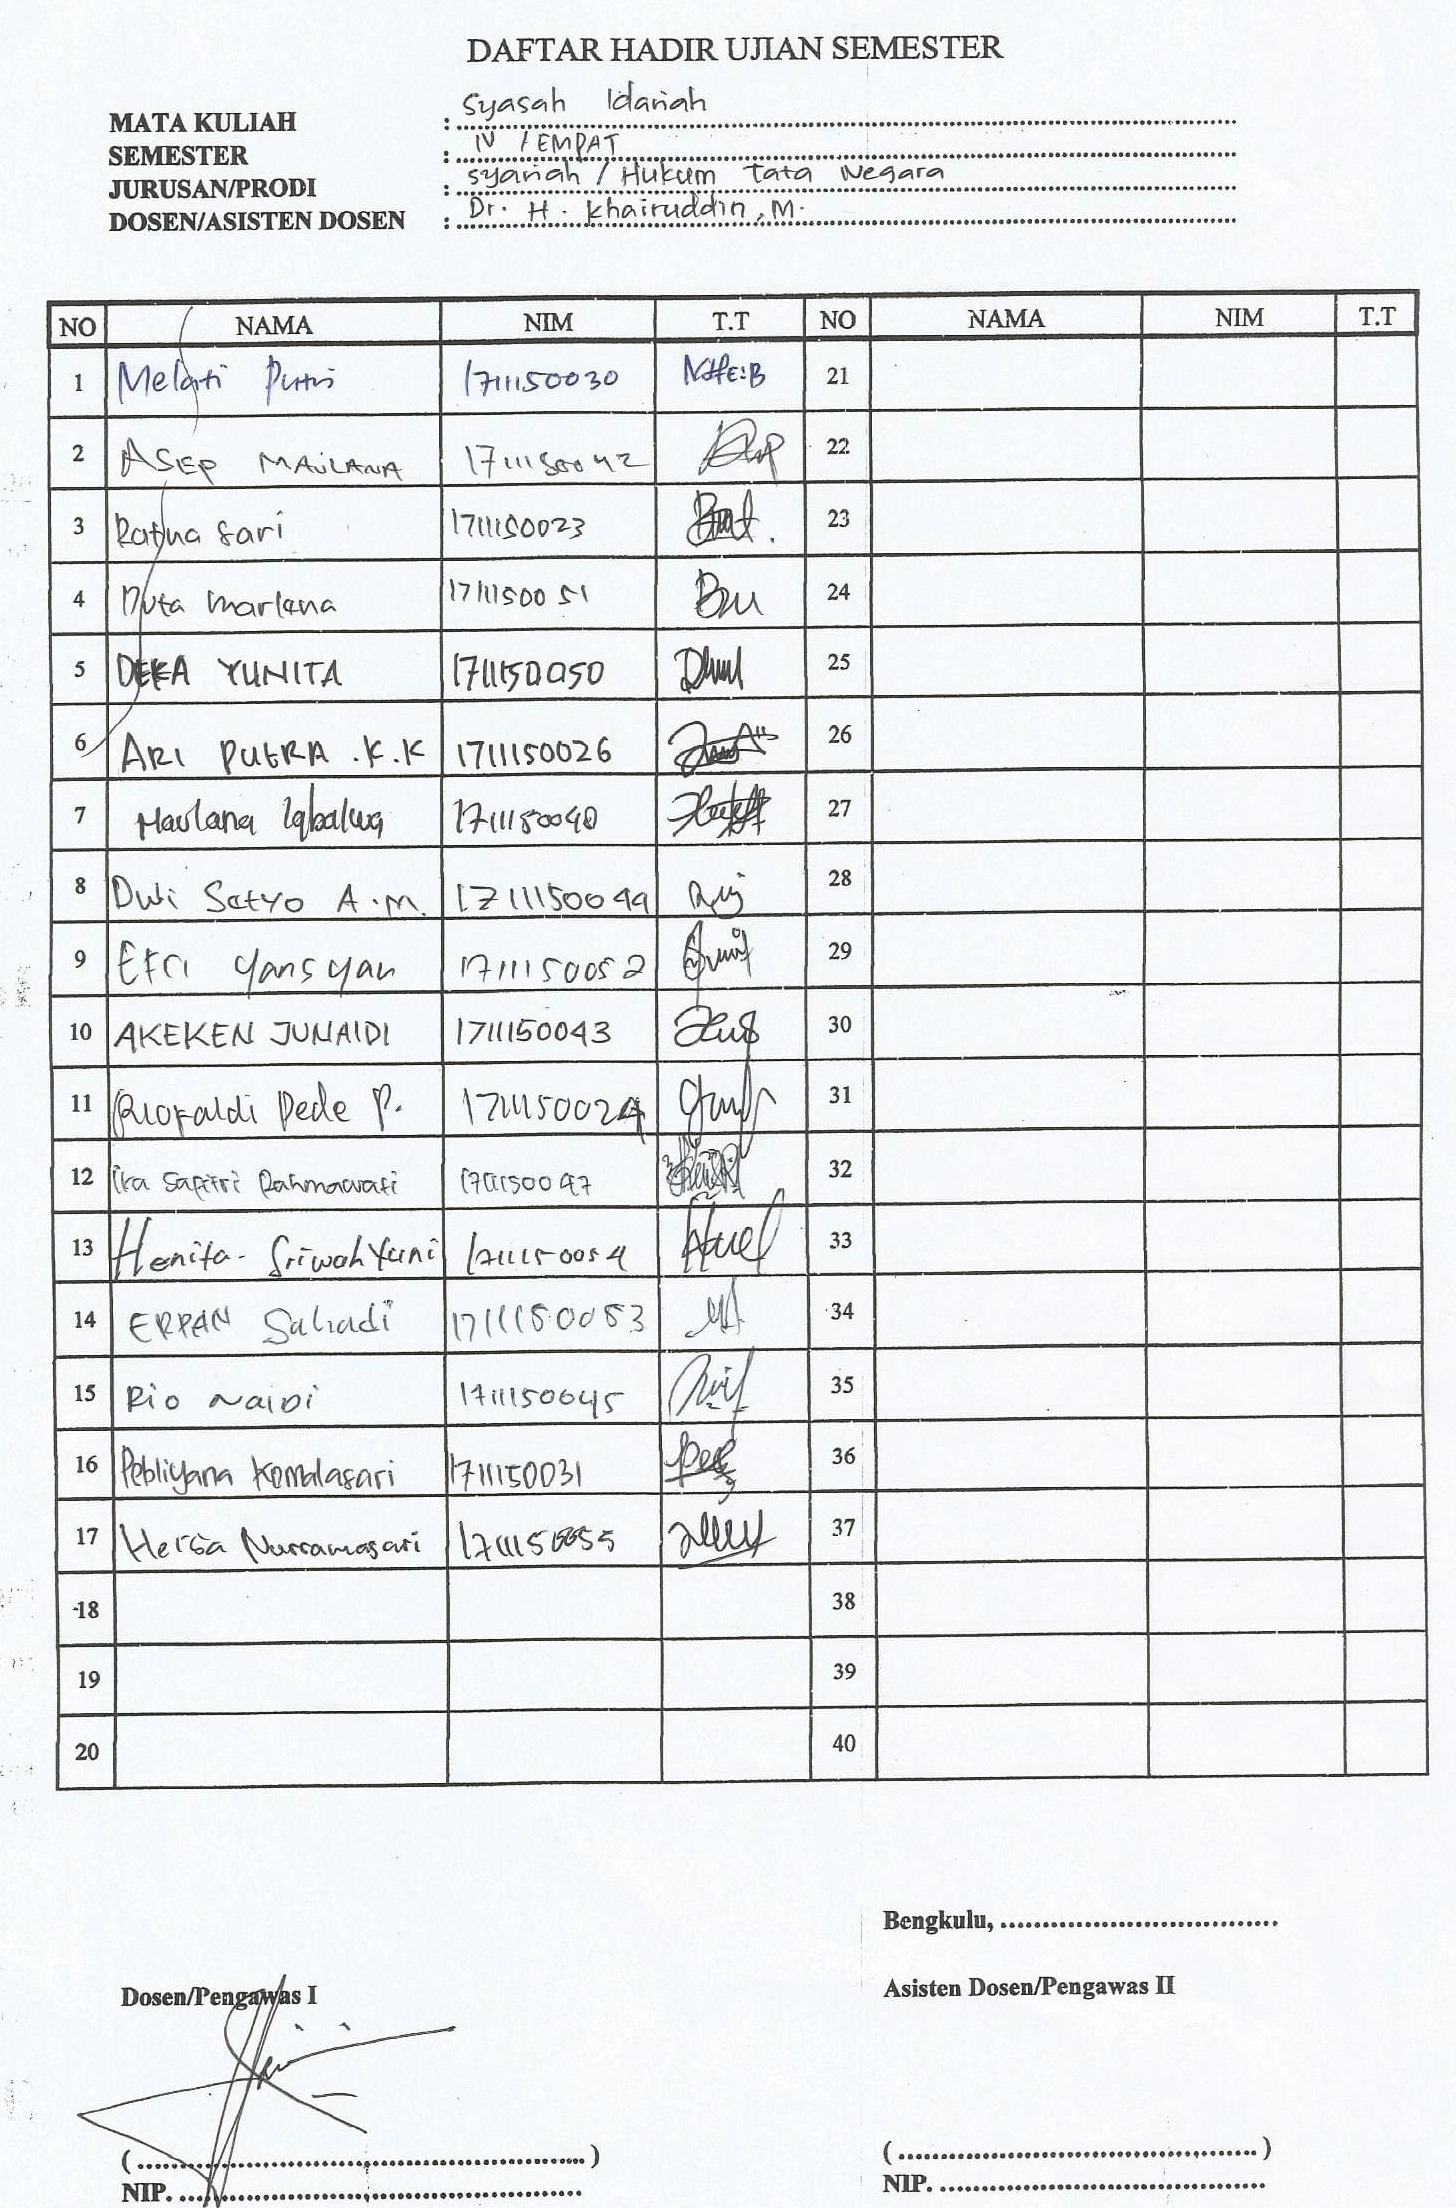 DAFTAR HADIR UJIAN SEMESTER
MATA KULIAH : Syasah Idariah
SEMESTER : IV / EMPAT
JURUSAN/PRODI : Syariah / Hukum Tata Negara
DOSEN/ASISTEN DOSEN : Dr. H. Khairuddin, M.
NO NAMA NIM T.T NO NAMA NIM T.T
1 Melati Putri 1711150030 21
2 ASEP MAULANA 1711150042 22
3 Ratna Sari 1711150023 23
4 Marlena 1711150051 24
5 DEKA YUNITA 1711150050 25
6 ARI PUTRA .K.K 1711150026 26
7 Maulana 1711150040 27
8 Dwi Satyo A.M. 1711150049 28
9 Efri Yansyah 1711150052 29
10 AKEKEN JUNAIDI 1711150043 30
11 Riofaldi Dede P. 1711150024 31
12 Ika Safitri Rahmawati 32
13 Henita Sriwahyuni 1711150054 33
14 ERPAN Suhadi 1711150053 34
15 Rio NAIDI 1711150045 35
16 Pebliyana Komalasari 1711150031 36
17 Nurramasari 37
18 38
19 39
20 40
Bengkulu, ................................
Dosen/Pengawas I
Asisten Dosen/Pengawas II
( ...................................................... )
( ........................................... )
NIP. ................................................
NIP. .......................................